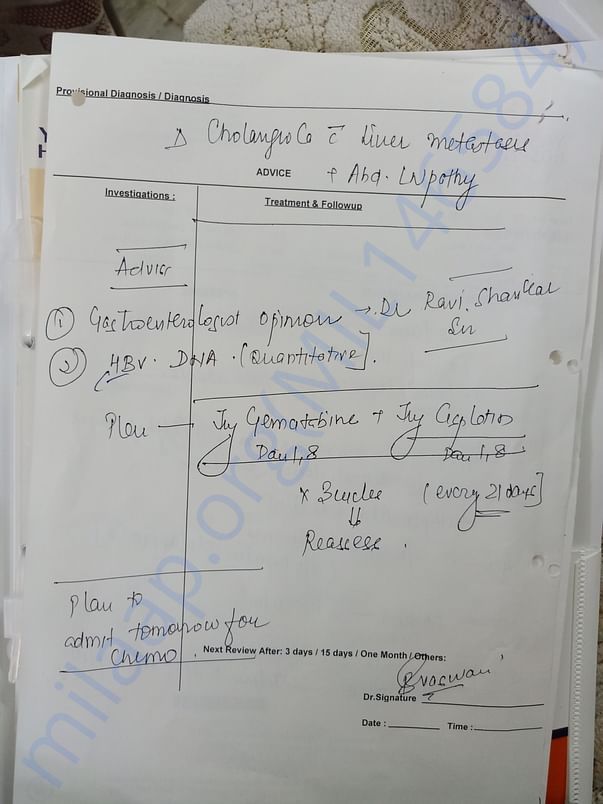 Provisional Diagnosis / Diagnosis
Δ Cholangio Ca c̄ Liver metastasis
ADVICE + Abd. LNpathy
Investigations : Treatment & Followup
Advice
① Gastroenterologist opinion → Dr Ravi. Shankar
Sir
② HBV. DNA. [Quantitative].
Plan — Inj Gemcitabine + Inj
Day 1, 8 Day 1, 8
x 3 cycles [every 21 days]
⇓
Reassess.
Plan to
admit tomorrow for
Chemo.
Next Review After: 3 days / 15 days / One Month / Others:
Dr.Signature
Date : Time :
milaap.org(MIL1465841)